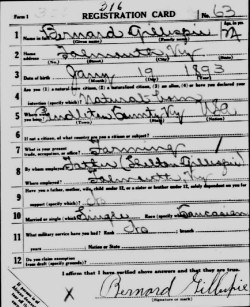 Form 1
216
REGISTRATION CARD
No. 63
1 Name in full Bernard Gillespie
(Given name) (Family name)
2 Home address Falmouth Ky
(No.) (Street) (City) (State)
3 Date of birth Jany 19 1893
(Month) (Day) (Year)
4 Are you (1) a natural-born citizen, (2) a naturalized citizen, (3) an alien, (4) or have you declared your
intention (specify which)? Natural born
5 Where were you born? Pendleton County Ky
(Town) (State) (Nation)
6 If not a citizen, of what country are you a citizen or subject?
7 What is your present trade, occupation, or office? Farming
8 By whom employed? Father
Where employed? Falmouth Ky
9 Have you a father, mother, wife, child under 12, or a sister or brother under 12, solely dependent on you for
support (specify which)? No
10 Married or single (which)? Single Race (specify which)? Caucasian
11 What military service have you had? Rank No branch
years Nation or State
12 Do you claim exemption from draft (specify grounds)?
I affirm that I have verified above answers and that they are true.
X Bernard Gillespie